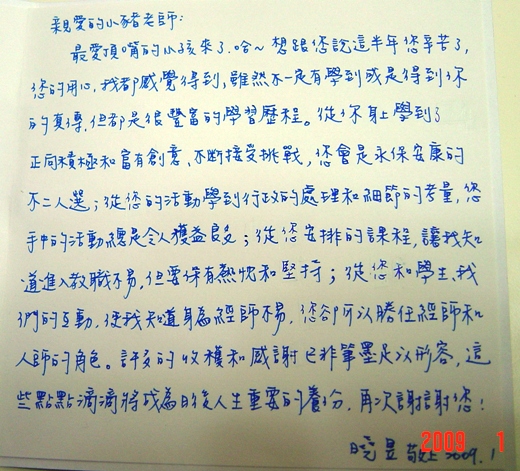 親愛的小豬老師:
最愛頂嘴的小孩來了.哈~想跟您說這半年您辛苦了,
您的用心,我都感覺得到,雖然不一定有學到或是得到你
的真傳,但都是很豐富的學習歷程。從你身上學到了
正向積極和富有創意、不斷接受挑戰,您會是永保安康的
不二人選;從您的活動學到行政的處理和細節的考量,您
手中的活動總是令人獲益良多;從您安排的課程,讓我知
道進入教職不易,但要保有熱忱和堅持;從您和學生、我
們的互動,使我知道身為經師不易,您卻可以勝任經師和
人師的角色。許多的收穫和感謝已非筆墨足以形容,這
些點點滴滴將成為日後人生重要的養份.再次謝謝您!
曉昱 敬上 2009.1
2009 1